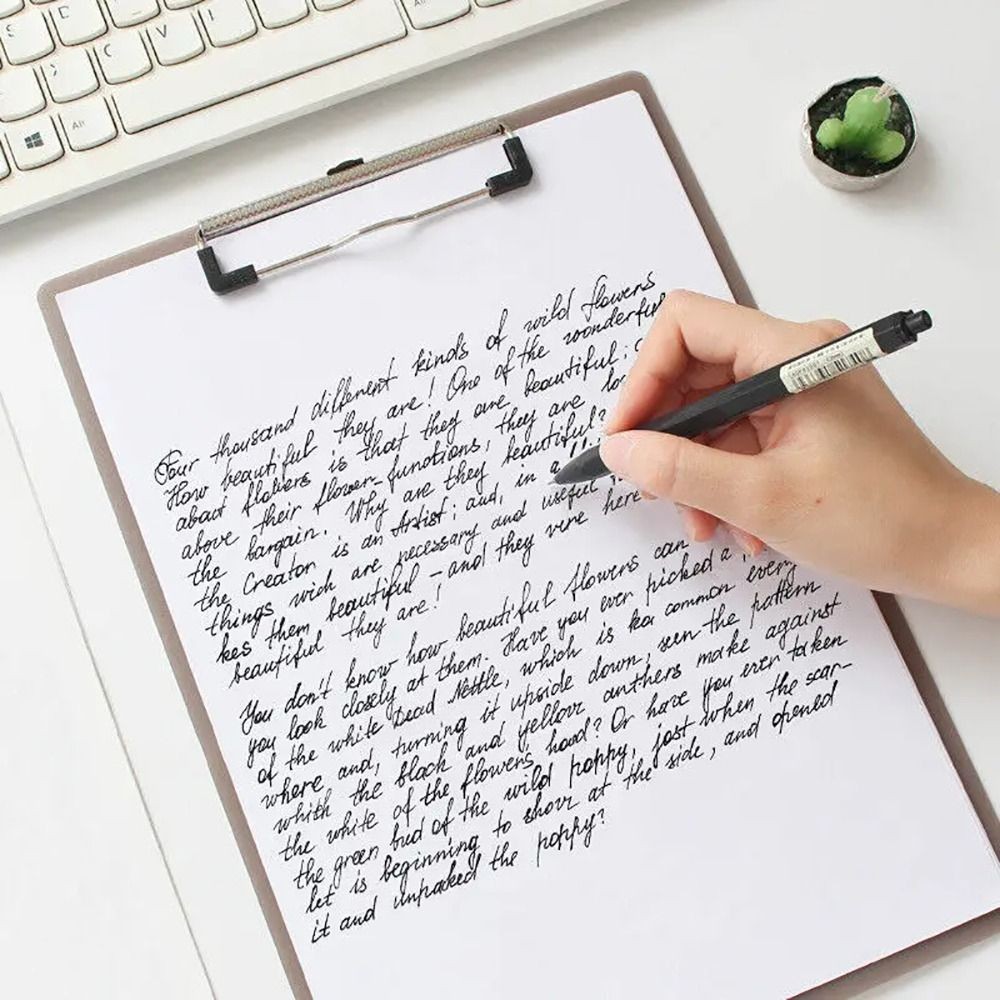 Four thousand different kinds of wild flowers
How beautiful they are! One of the wonderful
about flowers is that they are beautiful;
above their flower-functions, they are
the bargain. Why are they beautiful?
the Creator is an Artist; and, in
things wich are necessary and useful
kes them beautiful - and they vire here
beautiful they are!
You don't know how beautiful flowers can
you look closely at them. Have you ever picked a
of the white Dead Nettle, which is common every
where and, turning it upside down, seen the pattern
whith the black and yellow anthers make against
the white of the flowers hood? Or have you ever taken
the green bud of the wild poppy, just when the scar-
let is beginning to show at the side, and opened
it and unpacked the poppy?